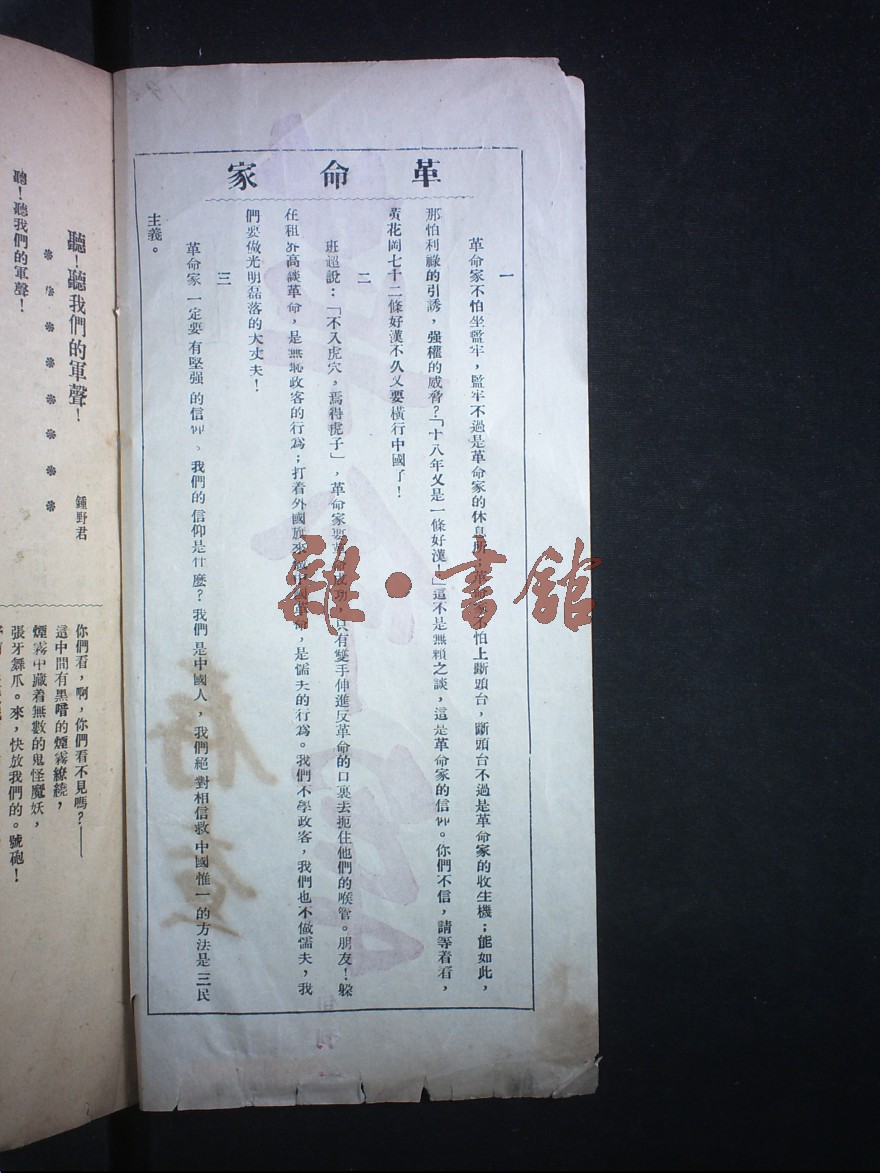 革命家
一
革命家不怕坐監牢，監牢不過是革命家的休息所，革命家不怕上斷頭台，斷頭台不過是革命家的收生機；能如此，
那怕利祿的引誘，强權的威脅？「十八年又是一條好漢！」這不是無賴之談，這是革命家的信仰。你們不信，請等着看，
黄花岡七十二條好漢不久又要橫行中國了！
二
班超說：「不入虎穴，焉得虎子」，革命家要革命成功，只有雙手伸進反革命的口裏去扼住他們的喉管。朋友！躲
在租界高談革命，是無恥政客的行為；打着外國旗來中國革命，是懦夫的行為。我們不學政客，我們也不做懦夫，我
們要做光明磊落的大丈夫！
三
革命家一定要有堅强的信仰、我們的信仰是什麼？我們是中國人，我們絕對相信救中國惟一的方法是三民
主義。
聽！聽我們的軍聲！
鍾野君
聽！聽我們的軍聲！
你們看，啊，你們看不見嗎？——
這中間有黑暗的煙霧繚繞，
煙霧中藏着無數的鬼怪魔妖，
張牙舞爪。來，快放我們的。號砲！
雜·書館